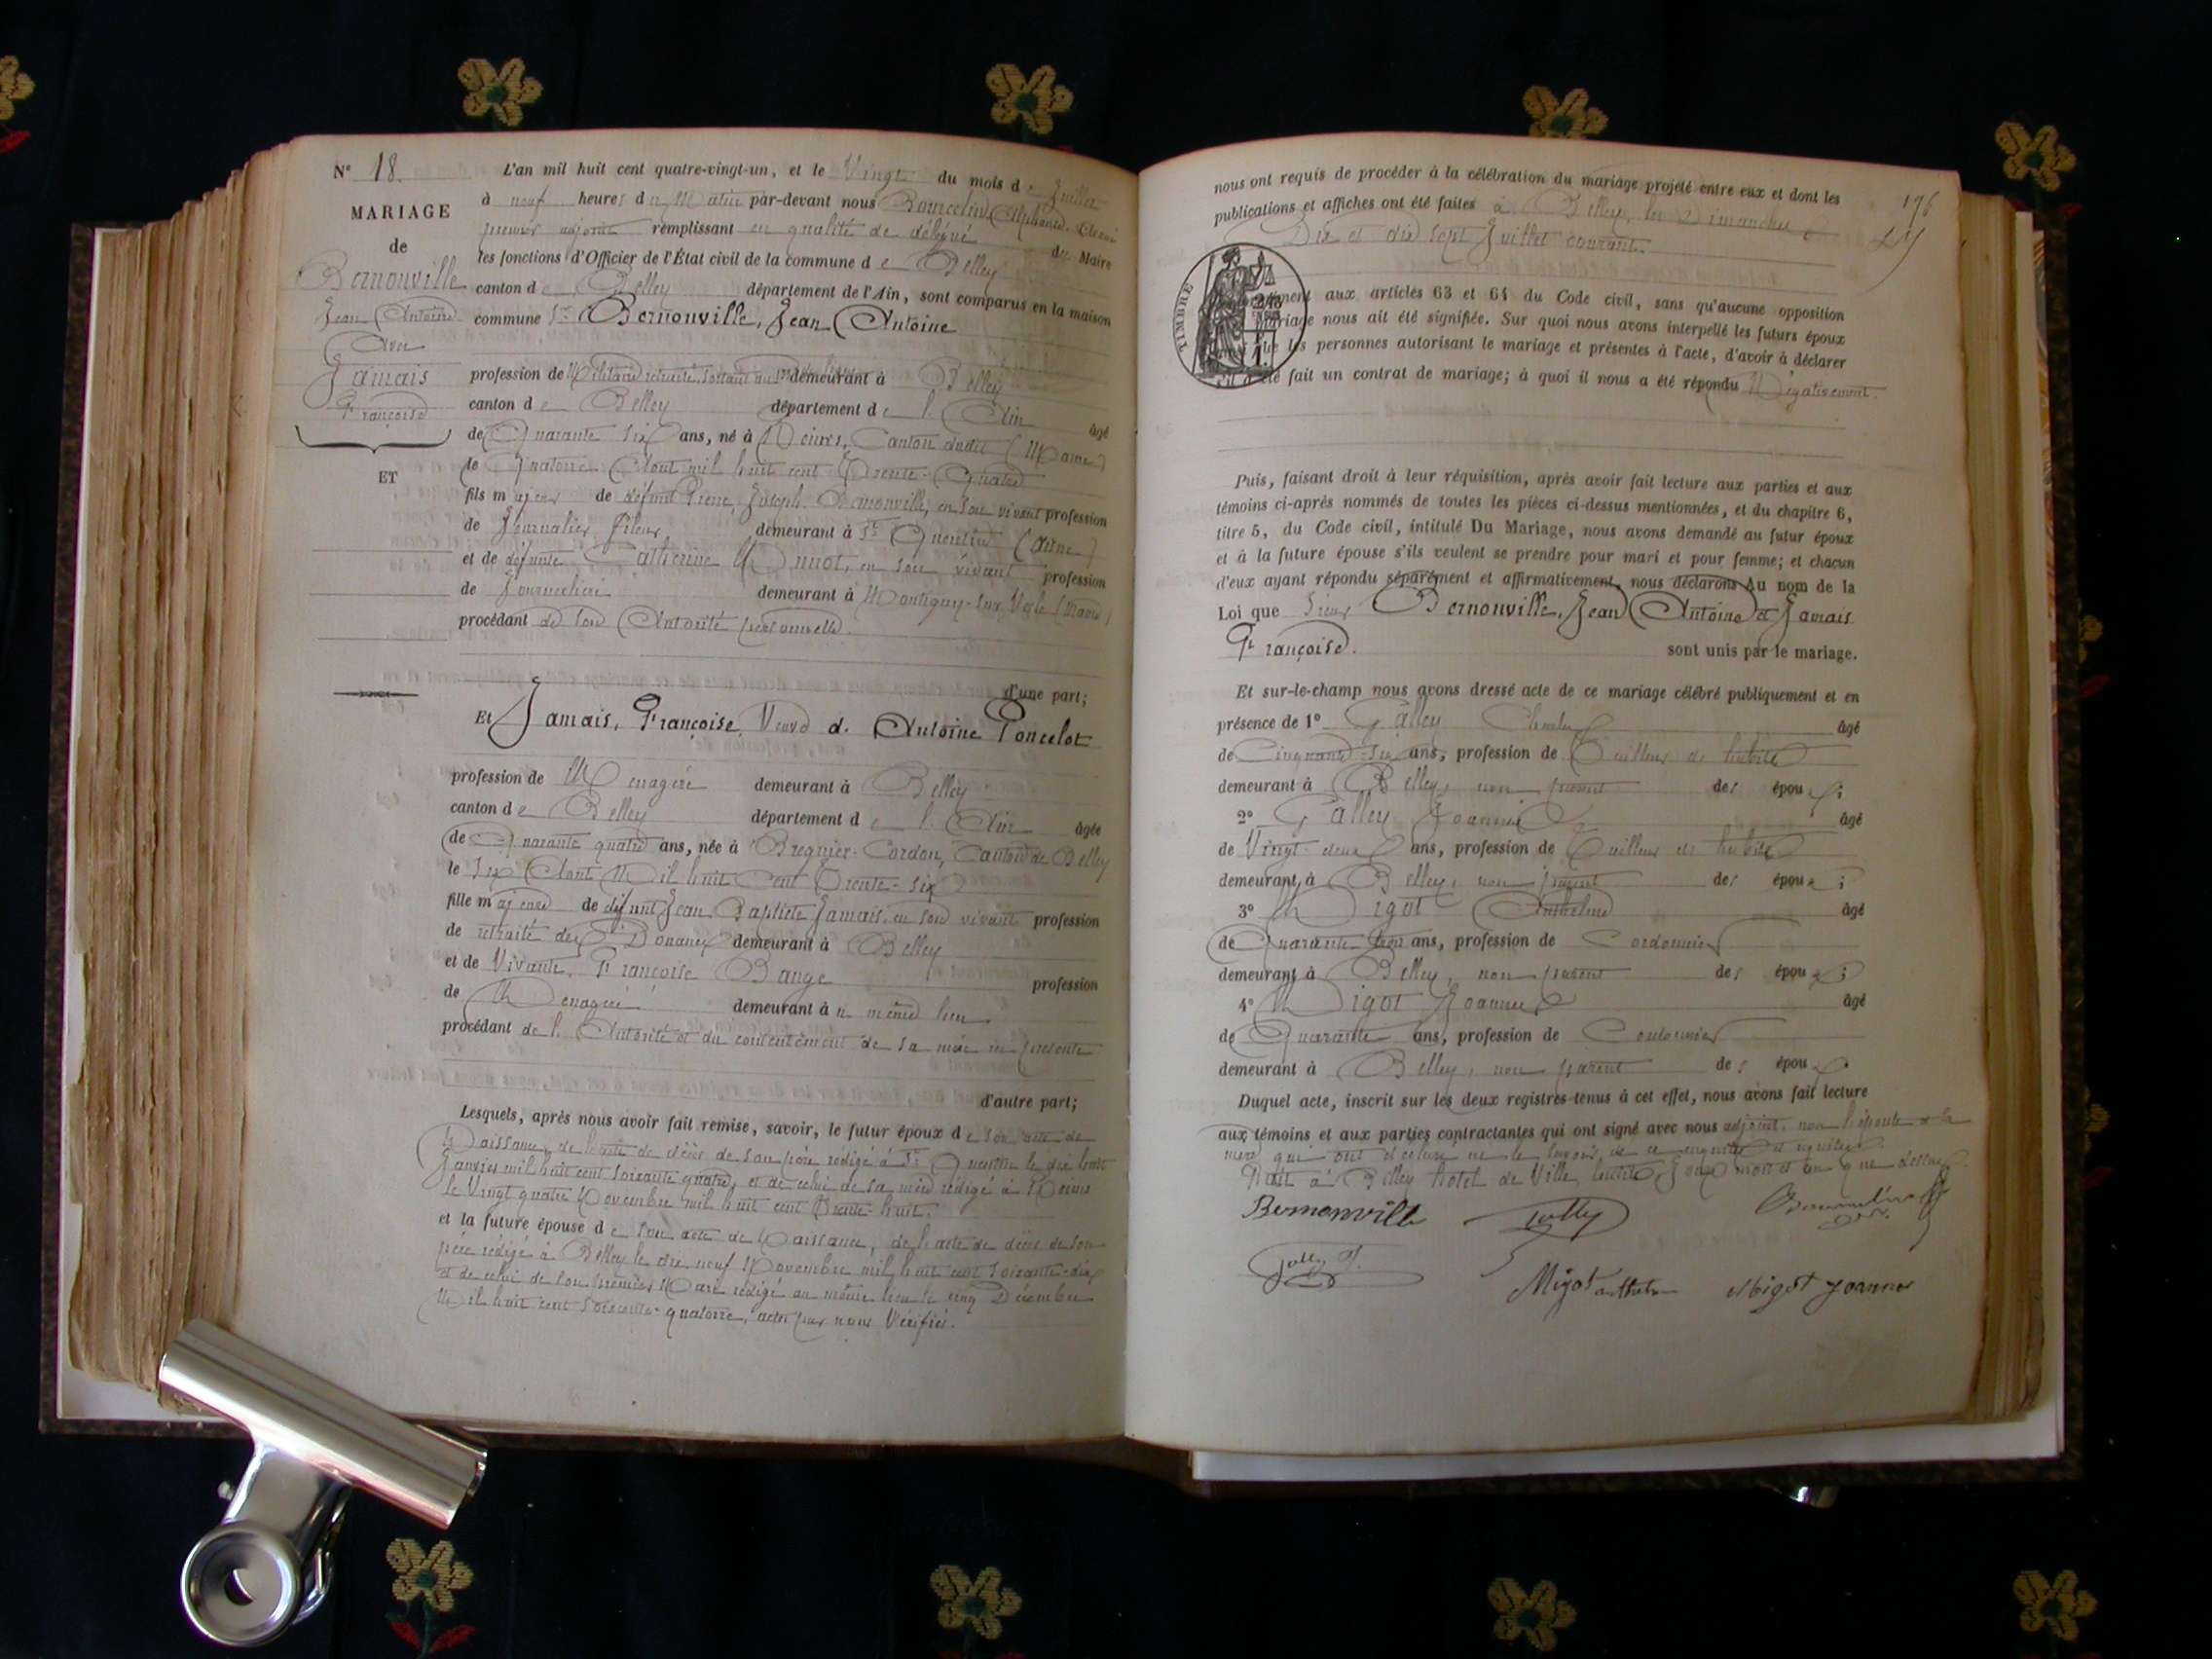 N° 18.
MARIAGE
de
Bernonville
Jean Antoine
Avec
Jamais
Françoise
ET
L'an mil huit cent quatre-vingt-un, et le Vingt du mois de Juillet
à neuf heures du Matin par-devant nous Bourcelin
premier adjoint remplissant en qualité de délégué du Maire
les fonctions d'Officier de l'État civil de la commune de Belley
canton de Belley département de l'Ain, sont comparus en la maison
commune Sr Bernonville, Jean Antoine
profession de Militaire retraité demeurant à Belley
canton de Belley département de l'Ain âgé
de Quarante six ans, né à Reims, Canton dudit (Marne)
le Quatorze Aout mil huit cent Trente-Quatre
fils majeur de défunt Pierre, Joseph Bernonville, en son vivant profession
de Journalier fileur demeurant à St Quentin (Aisne)
et de défunte Catherine en son vivant profession
de Journalière demeurant à Montigny-sur-Vesle (Marne)
procédant de son Autorité personnelle.
d'une part;
Et Jamais, Françoise, Veuve d. Antoine Poncelot
profession de Menagère demeurant à Belley
canton de Belley département de l'Ain âgée
de Quarante quatre ans, née à Bregnier-Cordon, Canton de Belley
le Six Aout Mil huit Cent Trente-six
fille majeure de défunt Jean Baptiste Jamais, en son vivant profession
de retraité des Douanes demeurant à Belley
et de Vivante, Françoise Bange profession
de Menagère demeurant à u même lieu
procédant de l'Autorité et du consentement de sa mère ici présente
d'autre part;
Lesquels, après nous avoir fait remise, savoir, le futur époux de son acte de
Naissance, de l'acte de décès de son père rédigé à St Quentin le dix huit
Janvier mil huit cent soixante quatre, et de celui de sa mère rédigé à Reims
le Vingt quatre Novembre mil huit cent Trente-huit.
et la future épouse de son acte de Naissance, de l'acte de décès de son
père rédigé à Belley le dix neuf Novembre mil huit cent soixante-dix
et de celui de son premier Mari rédigé au même lieu le cinq Décembre
Mil huit cent soixante-quatorze, actes par nous Vérifiés.
nous ont requis de procéder à la célébration du mariage projeté entre eux et dont les
publications et affiches ont été faites à Belley, les Dimanches
Dix et dix sept Juillet courant.
176
TIMBRE
aux articles 63 et 64 du Code civil, sans qu'aucune opposition
mariage nous ait été signifiée. Sur quoi nous avons interpellé les futurs époux
que les personnes autorisant le mariage et présentes à l'acte, d'avoir à déclarer
s'il a été fait un contrat de mariage; à quoi il nous a été répondu Négativement.
Puis, faisant droit à leur réquisition, après avoir fait lecture aux parties et aux
témoins ci-après nommés de toutes les pièces ci-dessus mentionnées, et du chapitre 6,
titre 5, du Code civil, intitulé Du Mariage, nous avons demandé au futur époux
et à la future épouse s'ils veulent se prendre pour mari et pour femme; et chacun
d'eux ayant répondu séparément et affirmativement, nous déclarons Au nom de la
Loi que Sieur Bernonville, Jean Antoine et Jamais
Françoise. sont unis par le mariage.
Et sur-le-champ nous avons dressé acte de ce mariage célébré publiquement et en
présence de 1° Galley Charles âgé
de Cinquante-six ans, profession de Tailleur de habits
demeurant à Belley, non parent des époux;
2° Galley Joannes âgé
de Vingt-deux ans, profession de Tailleur de habits
demeurant à Belley, non parent des époux;
3° Migot Anthelme âgé
de Quarante trois ans, profession de Cordonnier
demeurant à Belley, non parent des époux;
4° Migot Joannes âgé
de Quarante ans, profession de Cordonnier
demeurant à Belley, non parent des époux.
Duquel acte, inscrit sur les deux registres tenus à cet effet, nous avons fait lecture
aux témoins et aux parties contractantes qui ont signé avec nous adjoint, non l'épouse et la
mère qui ont déclaré ne le savoir, de ce enquises et requises.
Fait à Belley hôtel de Ville, lesdits Jour, mois et an que dessus.
Bernonville
Migot Joannes